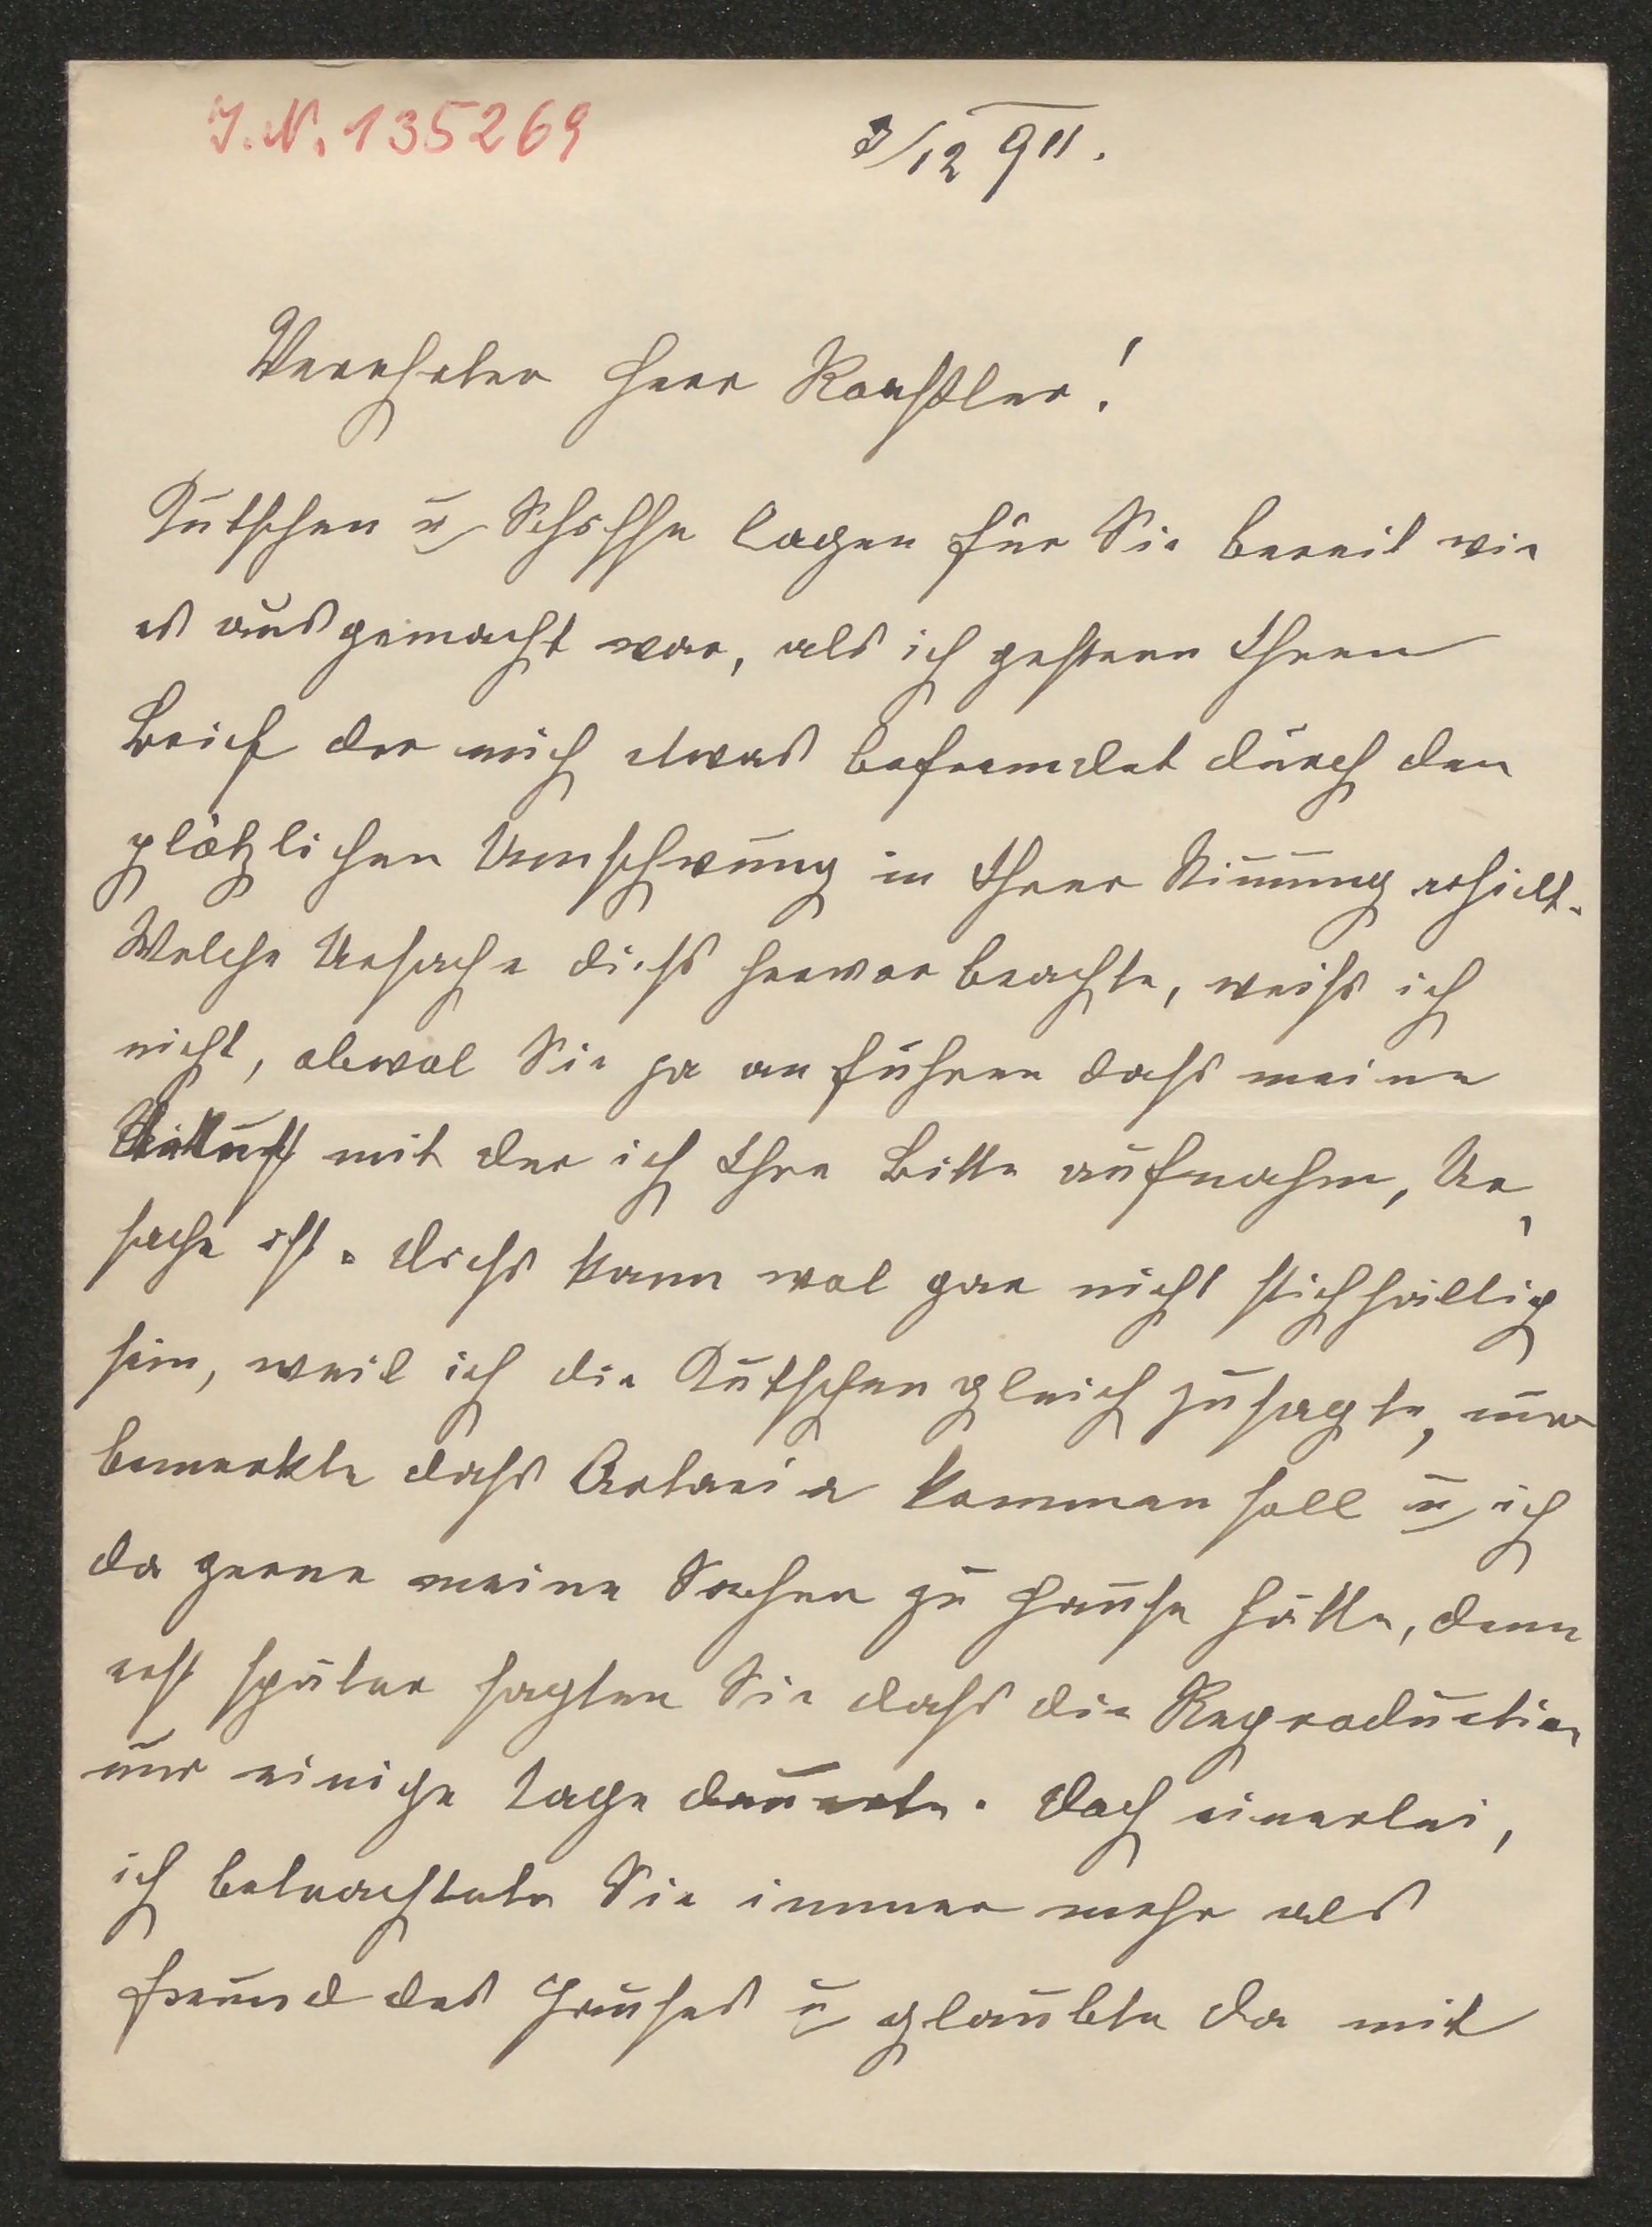 J.N. 135269
3/12 911.
Verehrter Herr Roessler!
Kutschen u Schiffe lagen für Sie bereit wie
es ausgemacht war, als ich gestern Ihren
Brief der mich etwas befremdet durch den
plötzlichen Umschwung in Ihrer Stimmung erhielt.
Welche Ursache diess hervor brachte, weiss ich
nicht, obwol Sie ja anführen dass meine
mit der ich Ihre Bitte aufnahm, Ur¬
sache ist. diess kann wol gar nicht stichhältig
sein, weil ich die Kutschen gleich zusagte, nur
bemerkte dass Artaria kommen soll u ich
da gerne meine Sachen zu Hause hätte, denn
erst später sagten Sie dass die Reproduction
nur einige Tage dauerte. Doch einerlei,
ich betrachtete Sie immer mehr als
Freund des Hauses u glaubte da mit